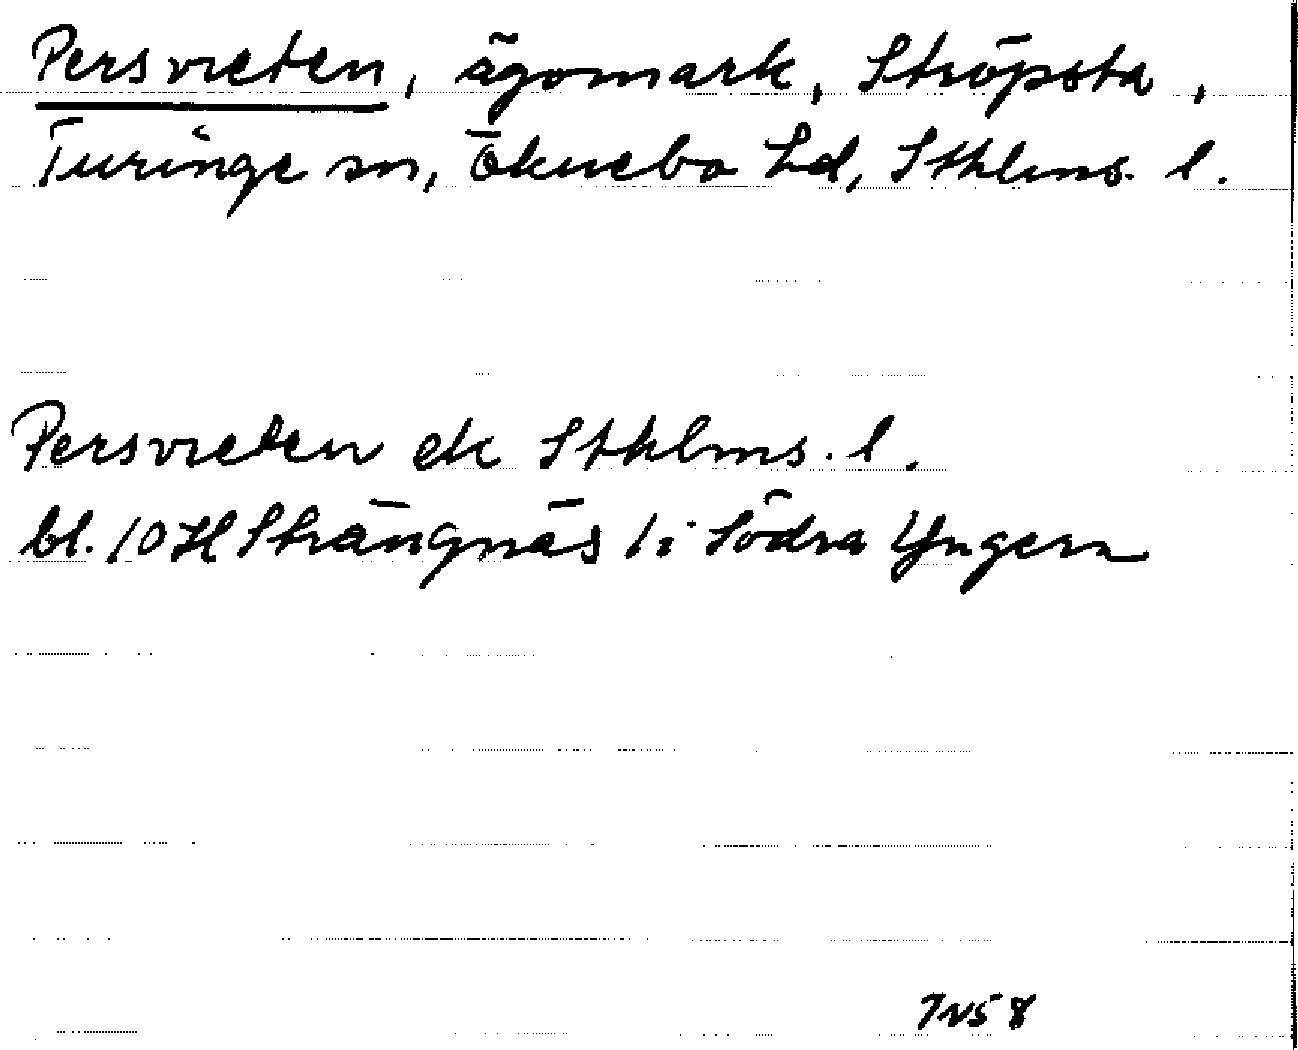 Persvreten, ägomark, Ströpsta,
Turinge sn, Öknebo hd, Sthlms. l.
Persvreten ek Sthlms. l.
bl. 10H Strängnäs 1i Södra Yngern